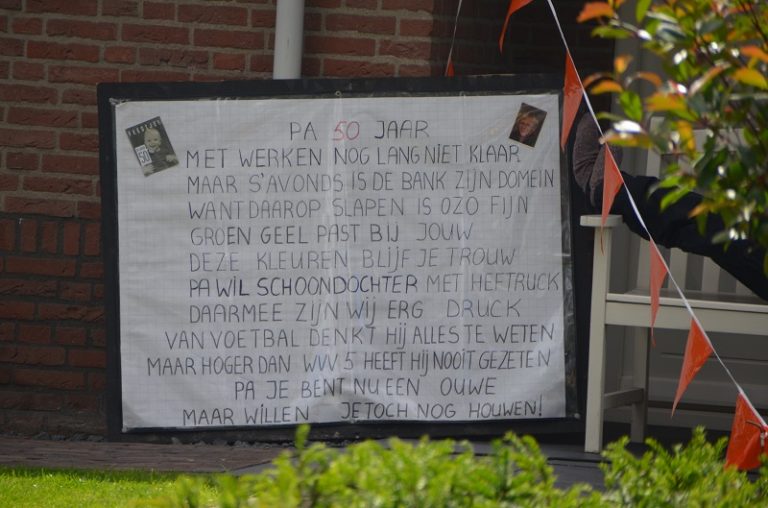 PA 50 JAAR
MET WERKEN NOG LANG NIET KLAAR
MAAR S'AVONDS IS DE BANK ZIJN DOMEIN
WANT DAAROP SLAPEN IS OZO FIJN
GROEN GEEL PAST BIJ JOUW
DEZE KLEUREN BLIJF JE TROUW
PA WIL SCHOONDOCHTER MET HEFTRUCK
DAARMEE ZIJN WIJ ERG DRUCK
VAN VOETBAL DENKT HIJ ALLES TE WETEN
MAAR HOGER DAN WVV 5 HEEFT HIJ NOOIT GEZETEN
PA JE BENT NU EEN OUWE
MAAR WILLEN JE TOCH NOG HOUWEN!
50